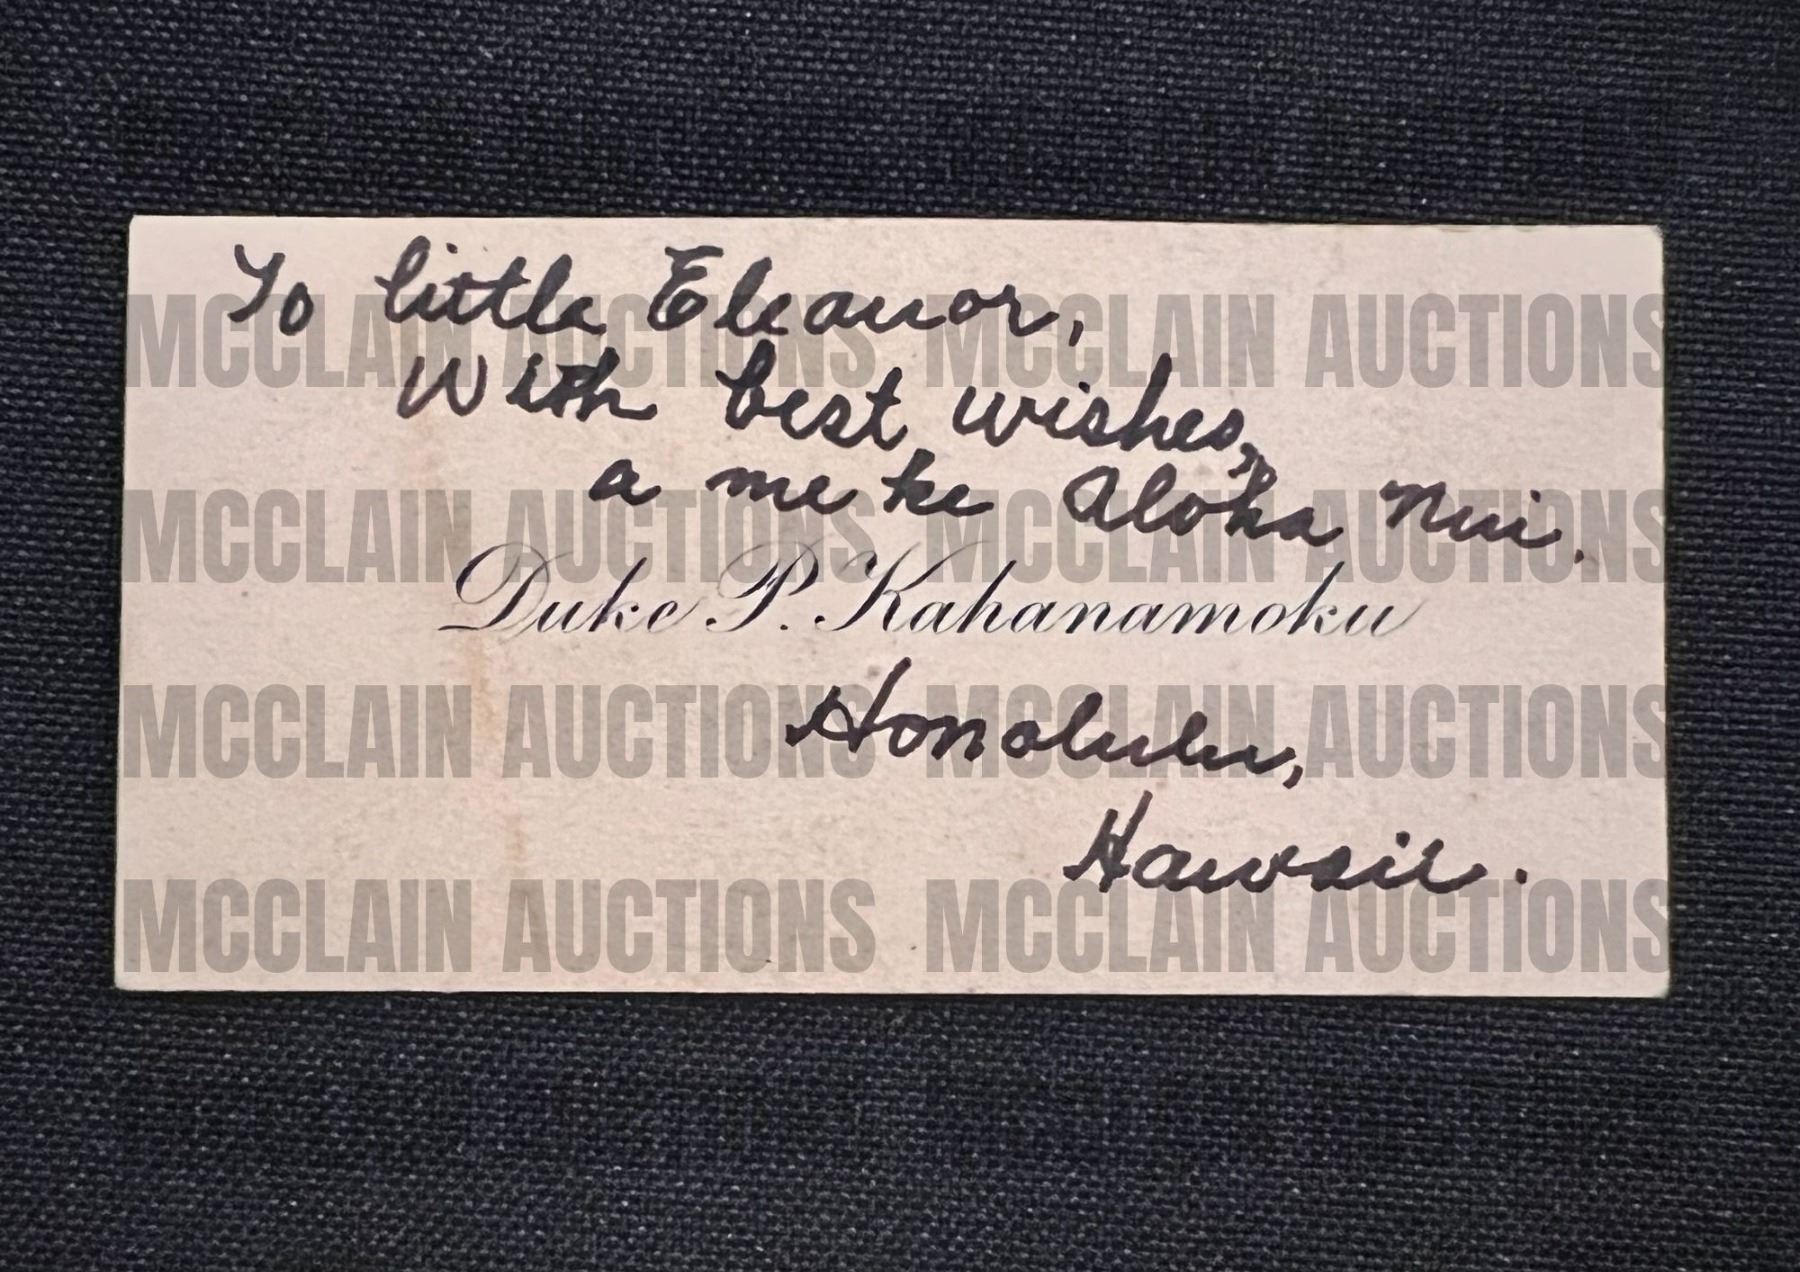 To little Eleanor,
With best wishes,
a me ke Aloha Nui.
Duke P. Kahanamoku
Honolulu,
Hawaii.
MCCLAIN AUCTIONS MCCLAIN AUCTIONS
MCCLAIN AUCTIONS MCCLAIN AUCTIONS
MCCLAIN AUCTIONS MCCLAIN AUCTIONS
MCCLAIN AUCTIONS MCCLAIN AUCTIONS